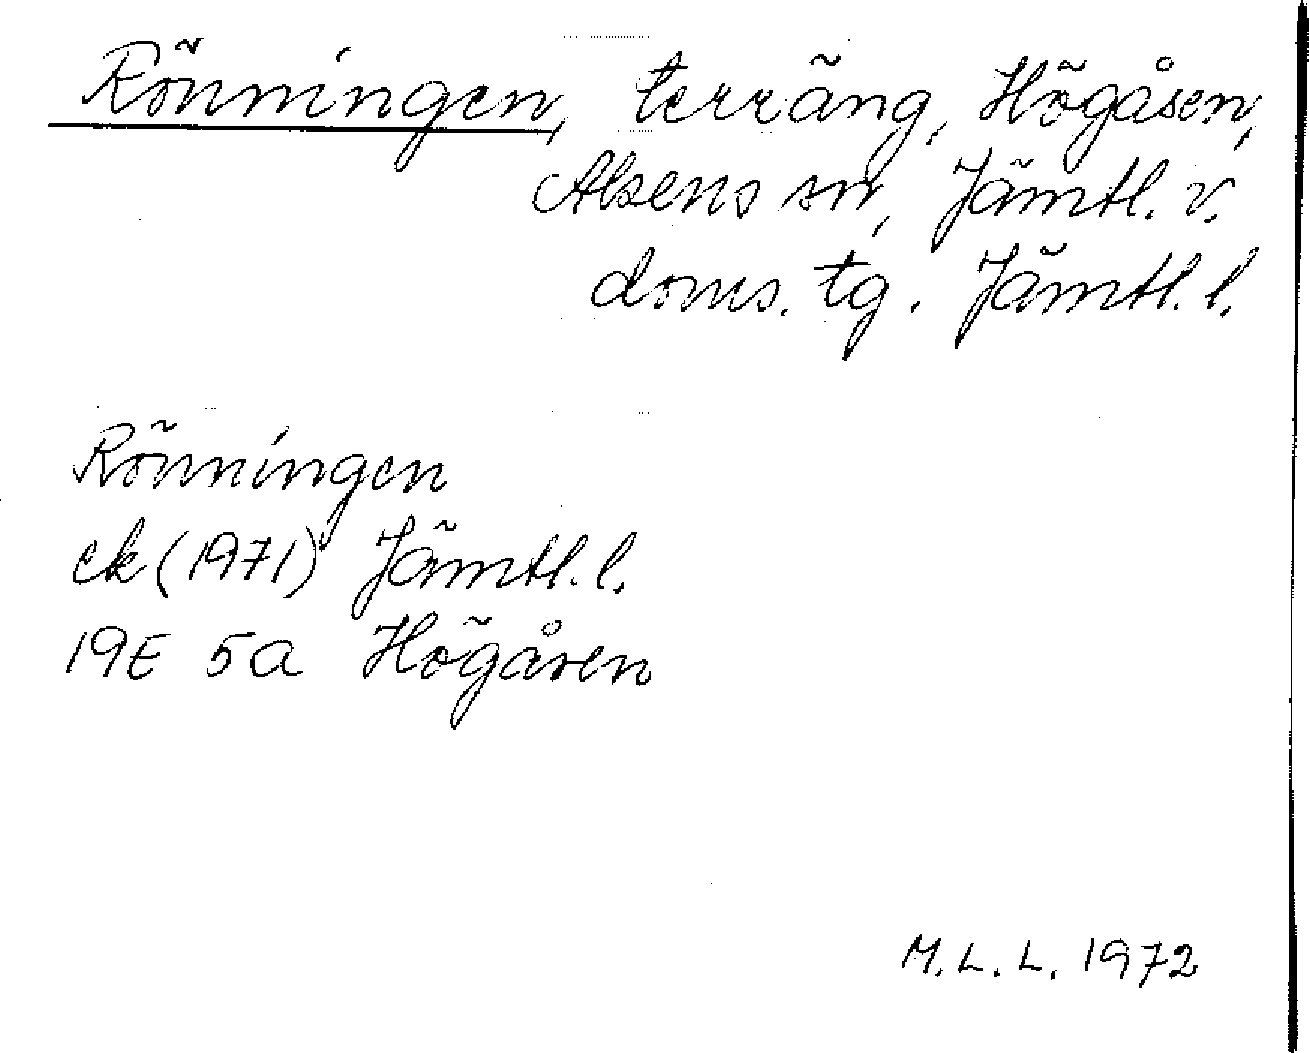 Rönningen, terräng, Högåsen,
Alsens sn, Jämtl. v.
doms. tg. Jämtl. l.
Rönningen
ek (1971) Jämtl. l.
19E 5a Högåsen
M. L. L. 1972